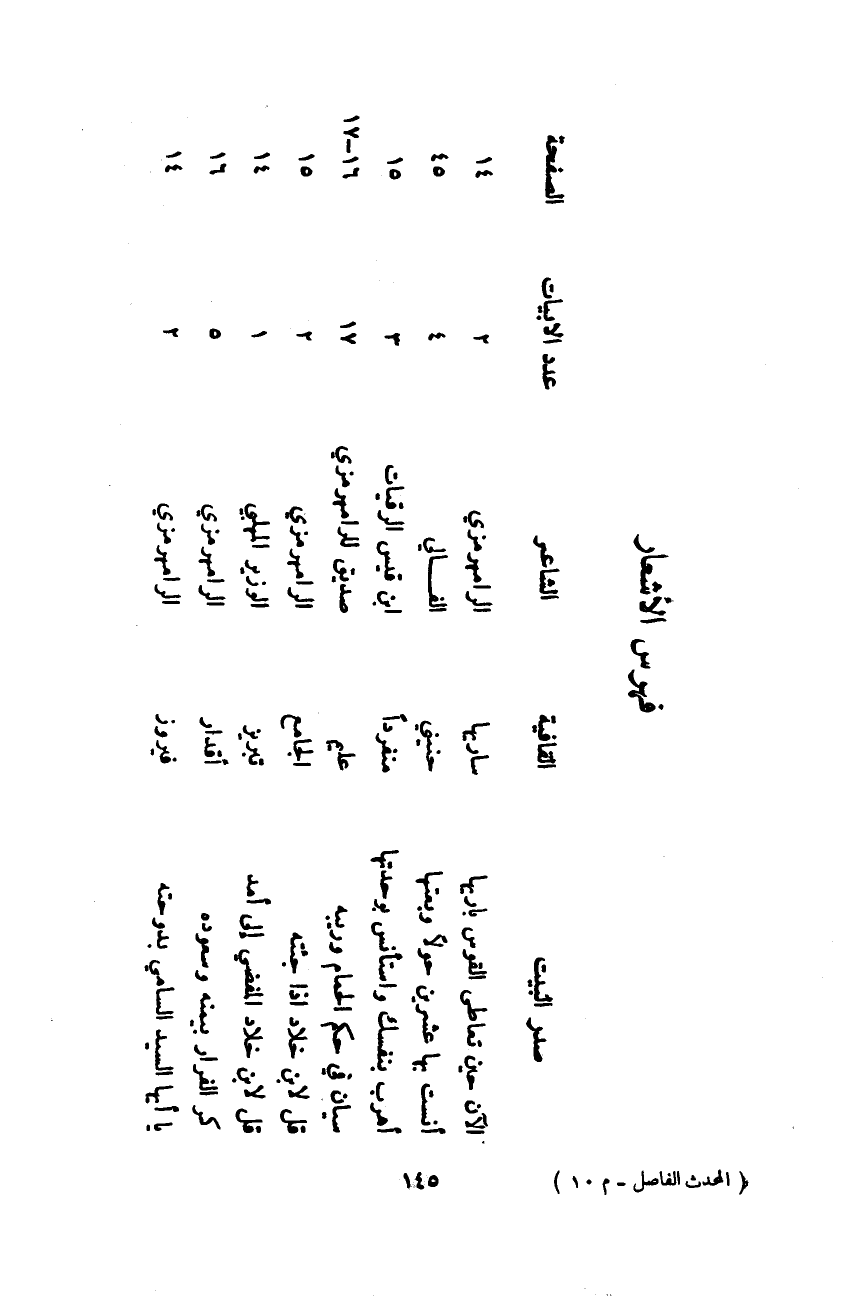 فهرس الأشعار
صدر البيت القافية الشاعر عدد الابيات الصفحة
الآن حين تعاطى القوس باريها ساريها الرامهرمزي ٢ ١٤
أنست بها عشرين حولاً وبعتها حنيني الفـالي ٤ ٤٥
أهرب بنفسك واستأنس بوحدتها منفرداً ابن قيس الرقيات ٣ ١٥
سيان في حكم الحمام وريبه عليم صديق للرامهرمزي ١٧ ١٦–١٧
قل لابن خلاد اذا جئته الجامع الرامهرمزي ٢ ١٥
قل لابن خلاد المفضي إلى أمد تبريز الوزير المهلبي ١ ١٤
كر القرار بيمنه وسعوده أقدار الرامهرمزي ٥ ١٦
يا أيها السيد السامي بدوحته فيروز الرامهرمزي ٢ ١٤
١٤٥
( المحدث الفاصل - م ١٠ )